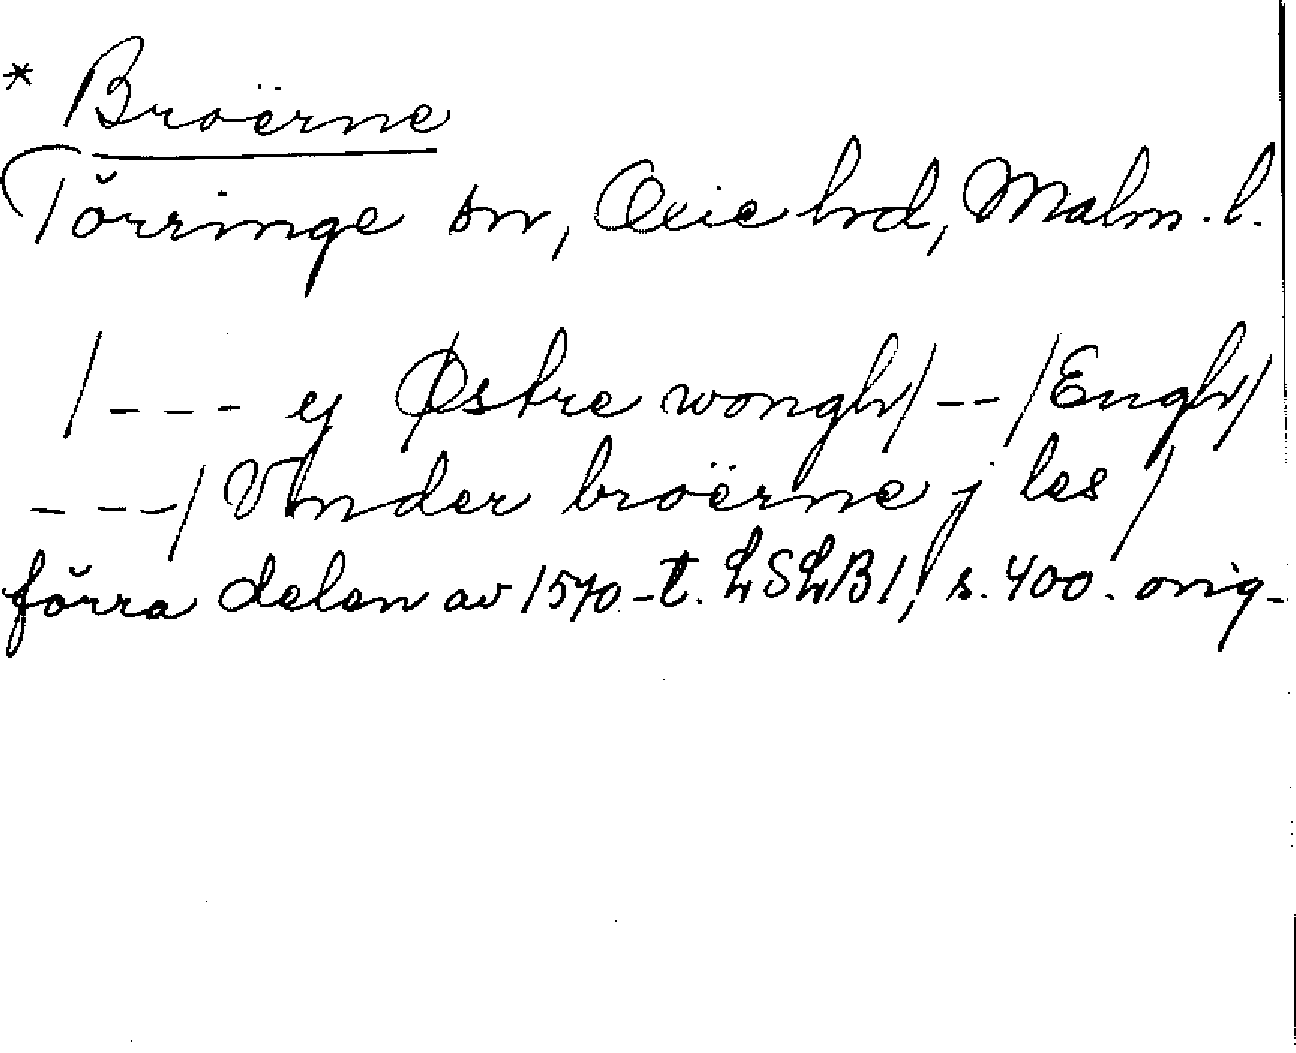 * Broërne
Törringe sn, Oxie hd, Malm. l.
/--- ej Østre wongh/--/Engh/
---/Vnder broërne j les /
förra delen av 1570-t. LSLB1, s. 400. orig.